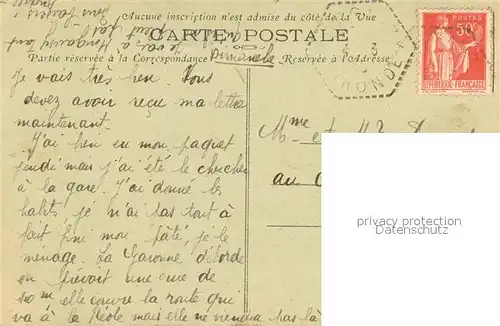 Aucune inscription n'est admise du côté de la Vue
CARTE POSTALE
Partie réservée à la Correspondance
Réservée à l'Adresse
Dimanche
POSTES
50c
RÉPUBLIQUE FRANÇAISE
je vais très bien Vous
devez avoir reçu ma lettre
maintenant.
J'ai bien eu mon paquet
jeudi mais j'ai été le chercher
à la gare. J'ai donné les
habits je n'ai pas tout à
fait fini mon pâté, je le
ménage. La Garonne déborde
on prévoit une crue de
10 m elle couvre la route qui
va à la Réole mais elle ne viendra pas là
Mme et M.
au
privacy protection
Datenschutz